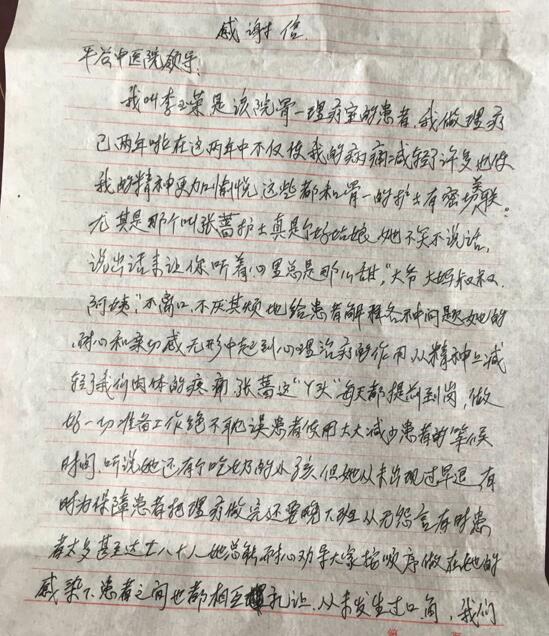 感谢信
平谷中医院领导:
我叫李玉荣是该院骨一理疗室的患者,我做理疗
已两年啦在这两年中不仅使我的病痛减轻了许多也使
我的精神更加愉悦这些都和骨一的护士有密切关联。
尤其是那个叫张蔷护士真是个好姑娘,她不笑不说话,
说出话来让你听着心里总是那么甜,"大爷大妈叔叔.
阿姨"不离口.不厌其烦地给患者解释各不中问题她的
耐心和亲切感无形中起到心理治疗的作用从精神上减
轻了我们肉体的疼痛.张蔷这"丫头"每天都提前到岗,做
好一切准备工作绝不耽误患者使用大大减少患者的等候
时间.听说她还有个吃奶的小孩.但她从未出现过早退.有
时为保障患者把理疗做完还要晚下班从无怨言有时患
者太多甚至达七八十人她总能耐心劝导大家按顺序做在她的
感染下.患者之间也都相互礼让.从未发生过口角,我们